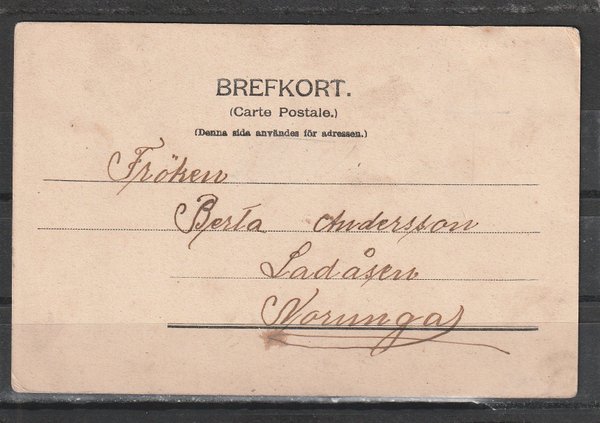 BREFKORT.
(Carte Postale.)
(Denna sida användes för adressen.)
Fröken
Berta Andersson
Ladåsen
Norunga